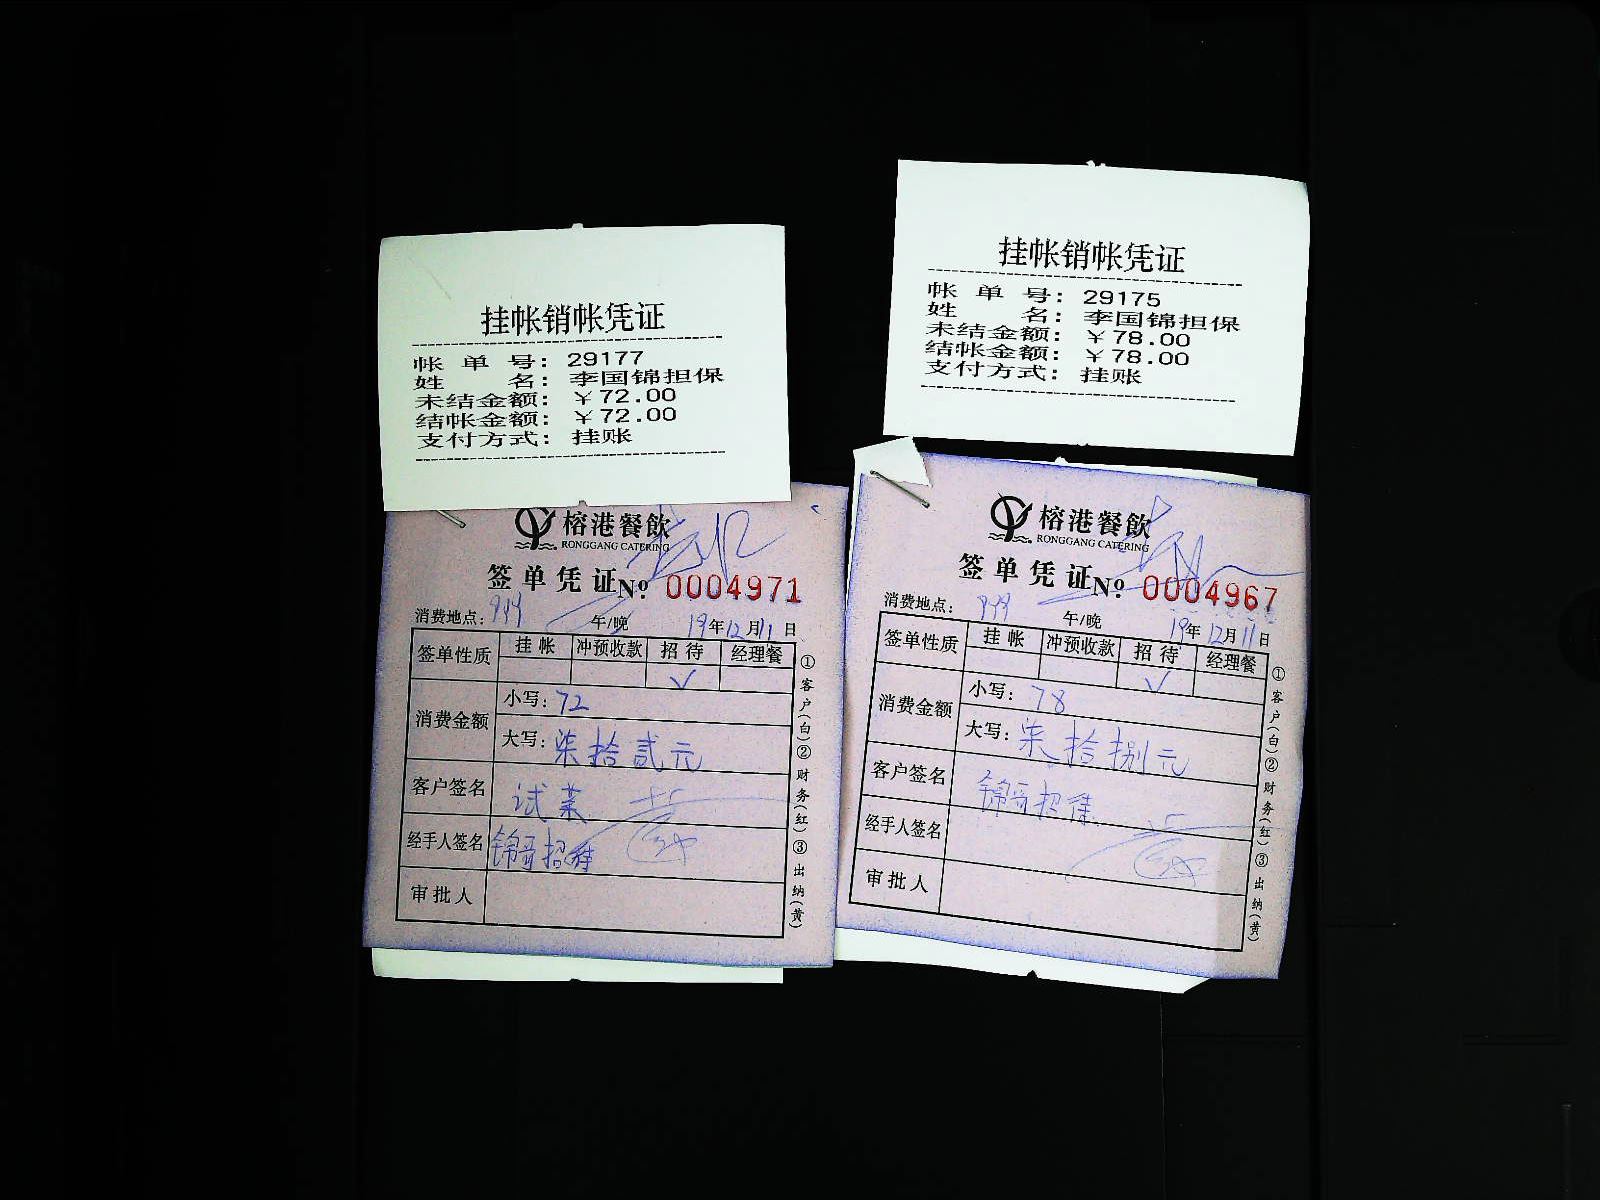 挂帐销帐凭证
帐单号：29177
姓名：李国锦担保
未结金额：￥72.00
结帐金额：￥72.00
支付方式：挂账
榕港餐飲
RONGGANG CATERING
签单凭证 №0004971
消费地点： 午/晚 19年12月11日
签单性质 挂帐 冲预收款 招待 经理餐
✓
消费金额 小写：72
大写：柒拾贰元
客户签名 试菜
经手人签名 锦哥招待
审批人
①客户(白)②财务(红)③出纳(黄)
挂帐销帐凭证
帐单号：29175
姓名：李国锦担保
未结金额：￥78.00
结帐金额：￥78.00
支付方式：挂账
榕港餐飲
RONGGANG CATERING
签单凭证 №0004967
消费地点： 午/晚 19年12月11日
签单性质 挂帐 冲预收款 招待 经理餐
✓
消费金额 小写：78
大写：柒拾捌元
客户签名 锦哥招待
经手人签名
审批人
①客户(白)②财务(红)③出纳(黄)